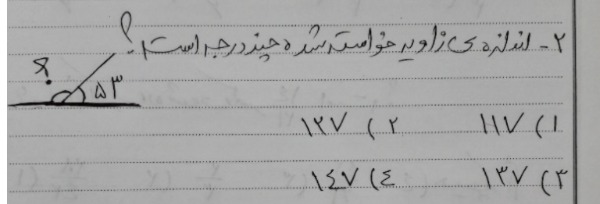 ۲- اندازه‌ی زاویه خواسته شده چند درجه است؟
؟
۵۳
۱) ۱۱۷ ۲) ۱۲۷
۳) ۱۳۷ ۴) ۱۴۷